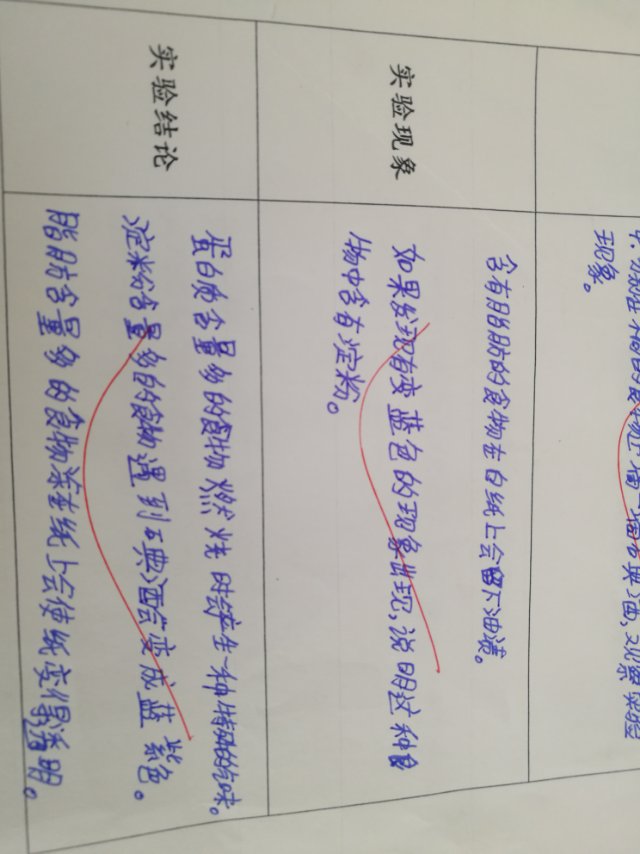 4.分别在不同的食物上滴一滴碘酒,观察实验
现象。
实验现象
含有脂肪的食物在白纸上会留下油渍。
如果发现有变蓝色的现象出现,说明这种食
物中含有淀粉。
实验结论
蛋白质含量多的食物燃烧时会产生一种特殊的气味。
淀粉含量多的食物遇到碘酒会变成蓝紫色。
脂肪含量多的食物涂在纸上会使纸变得透明。